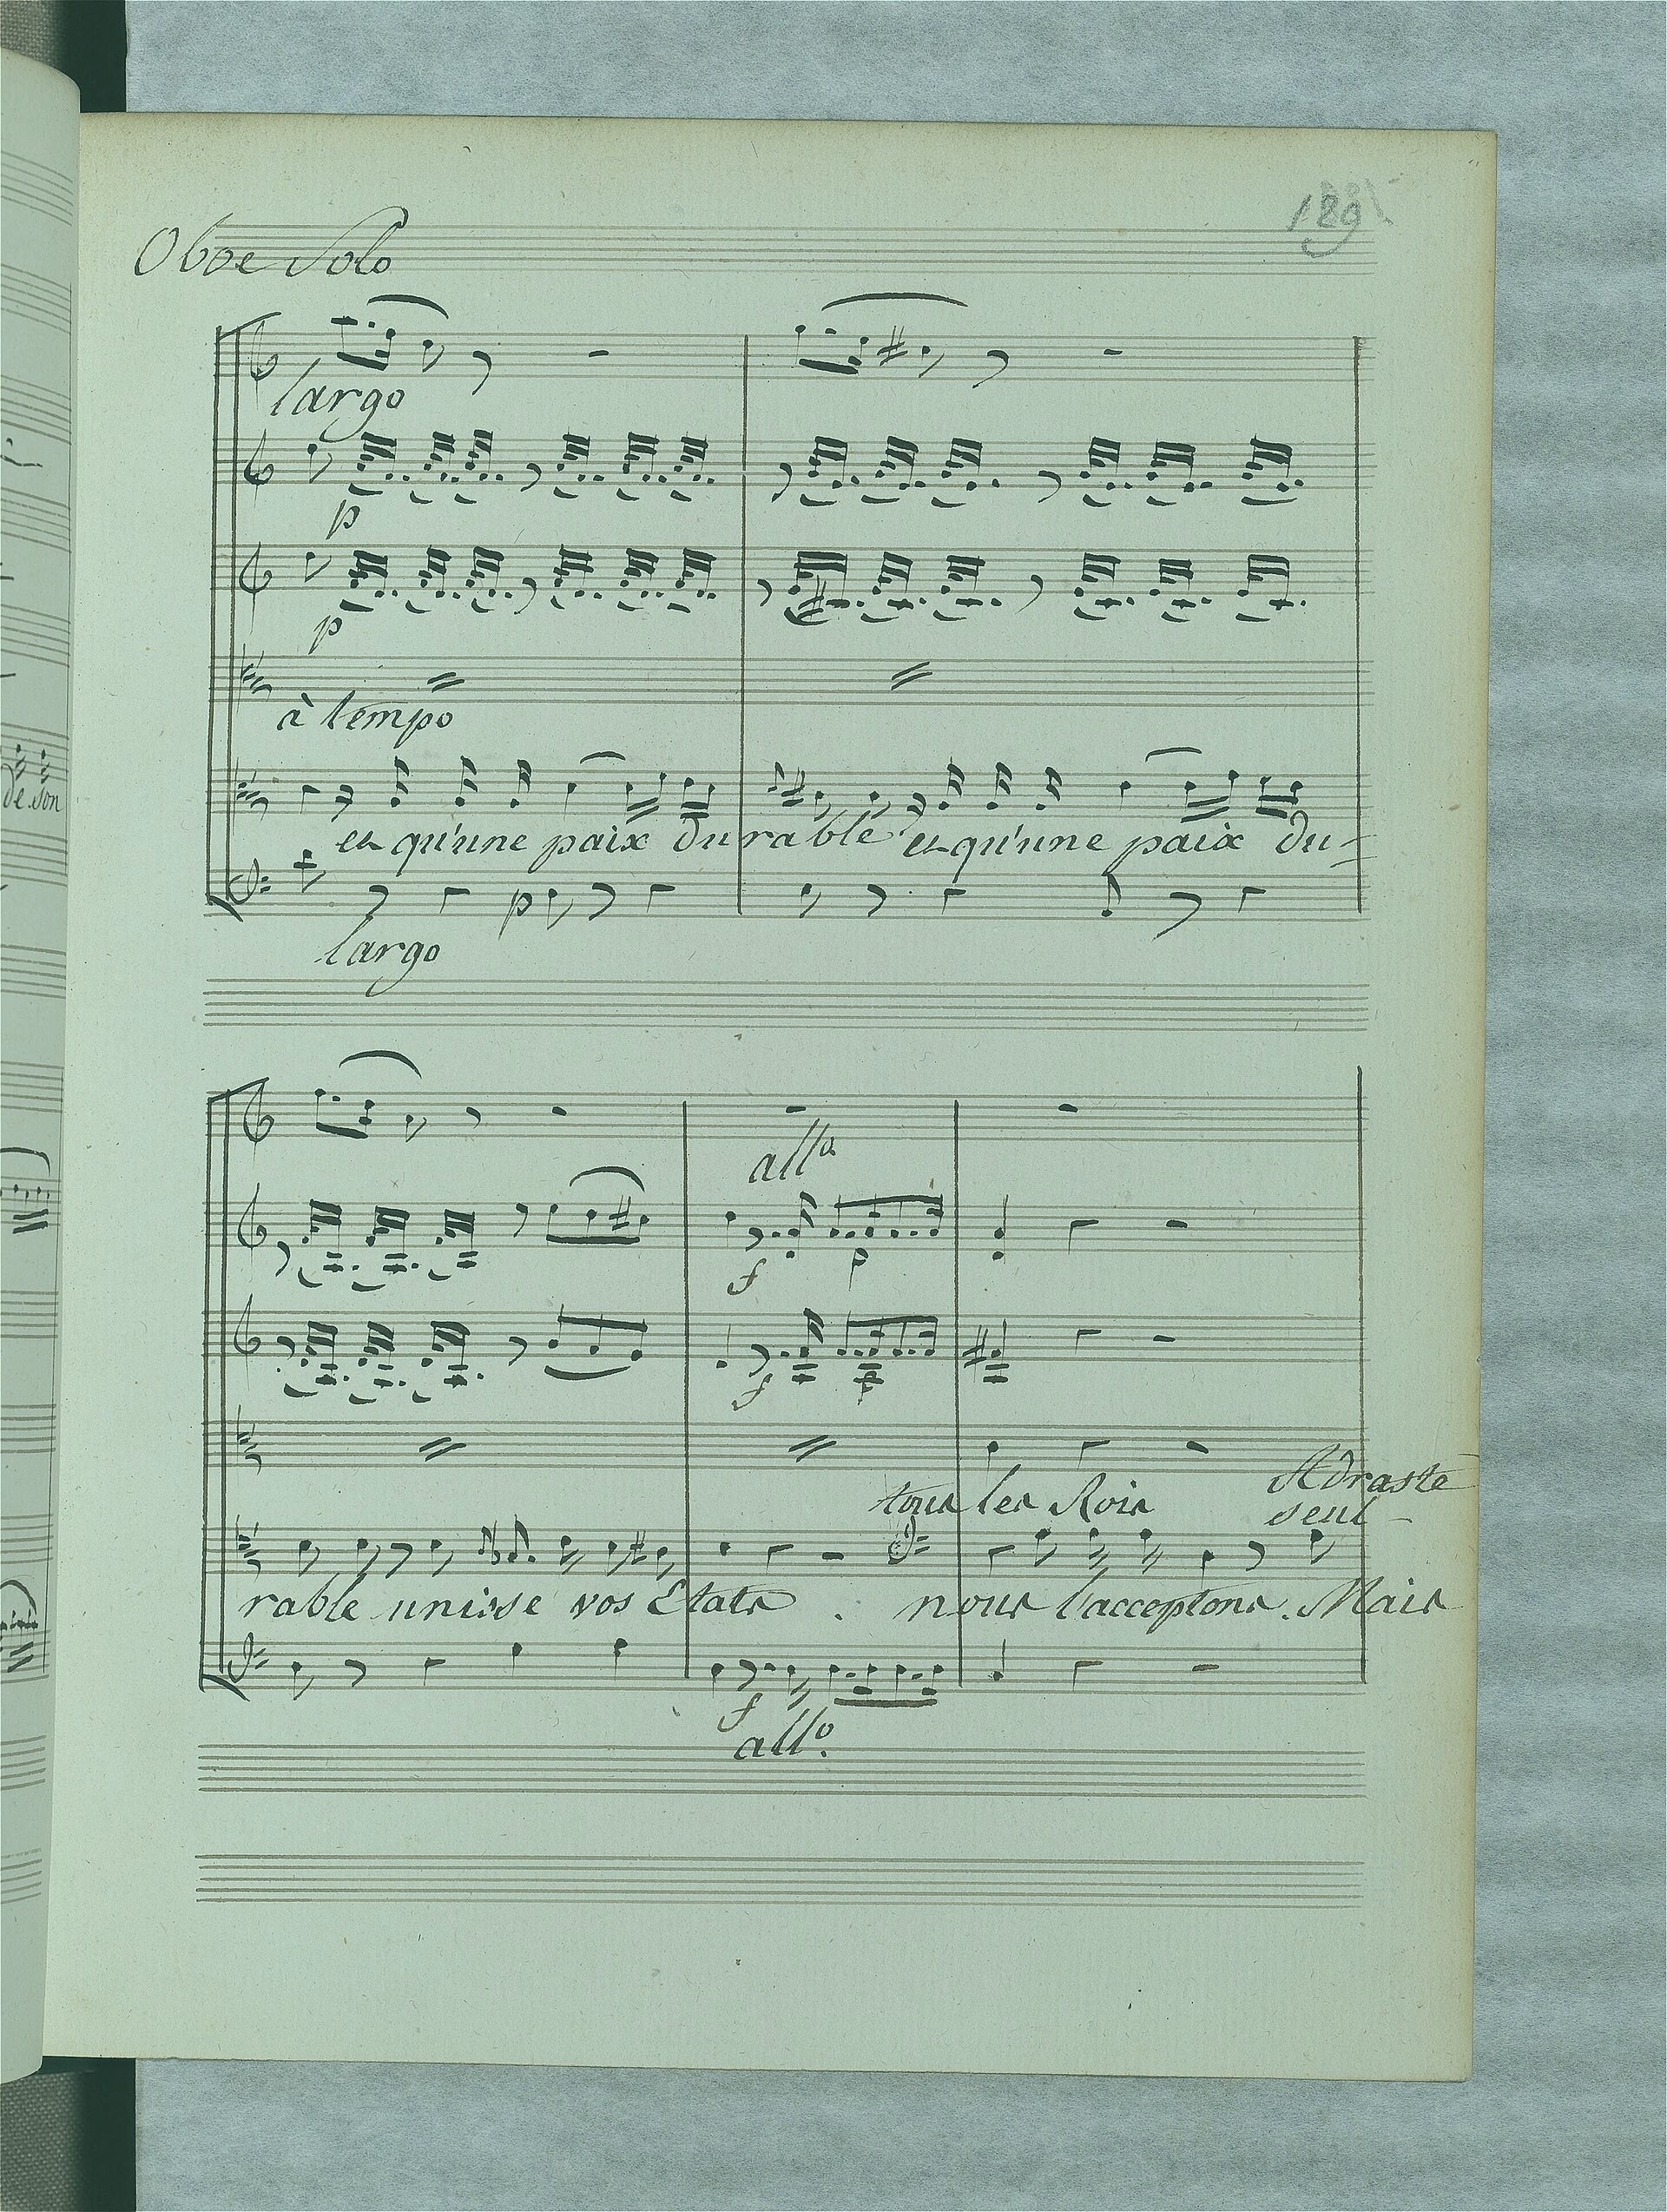 189
Oboe Solo
largo
p
p
à tempo
et qu'une paix durable et qu'une paix du-
p
largo
de son
allo
f p
f p
tous les Rois
Adraste
seul
rable unisse vos Etats . nous l'acceptons. Mais
f
allo.